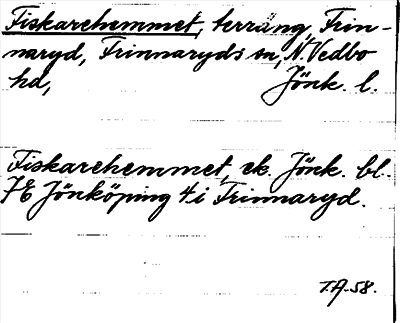 Fiskarehemmet, terräng, Frin-
naryd, Frinnaryds sn, N. Vedbo
hd, Jönk. l.
Fiskarehemmet, ek. Jönk. bl.
7E Jönköping 4i Frinnaryd.
T.A.-58.